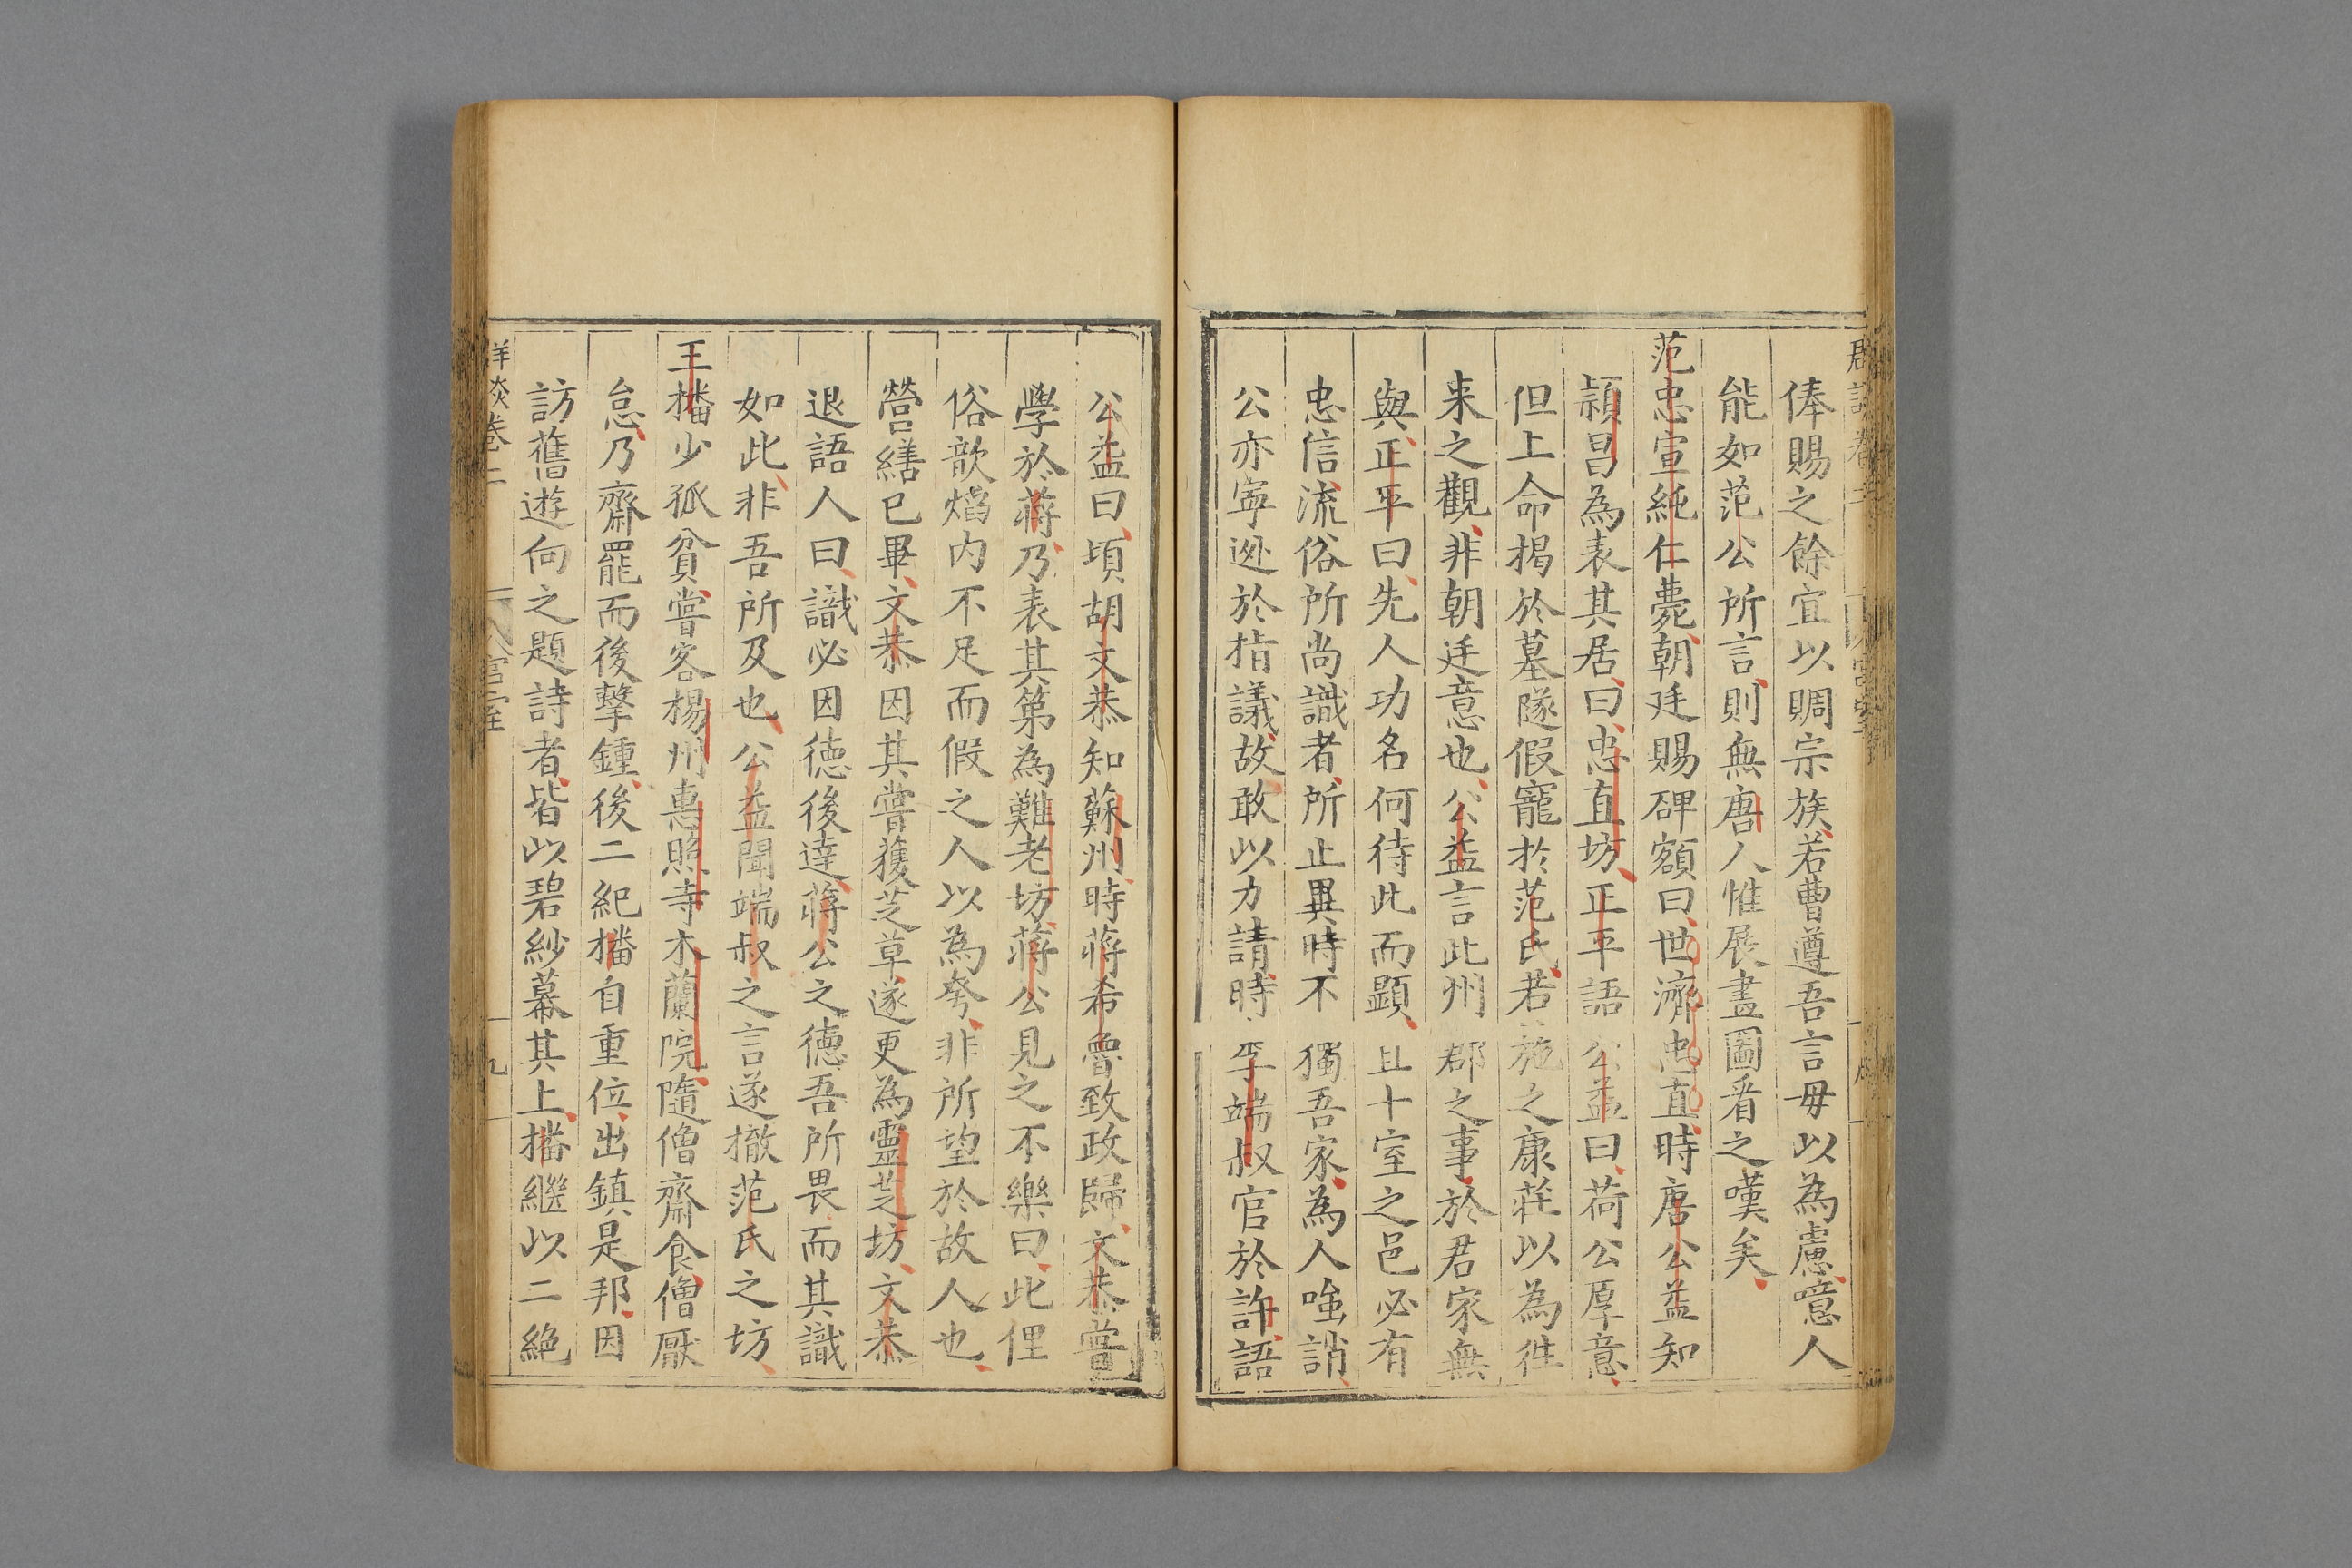 俸賜之餘宜以賙宗族若曹遵吾言毋以為慮噫人
能如范公所言則無唐人惟展畫圖看之嘆矣
范忠宣純仁薨朝廷賜碑額曰世濟忠直時唐公益知
潁昌為表其居曰忠直坊正平語公益曰荷公厚意
但上命揭於墓隧假寵於范氏若施之康莊以為徃
来之觀非朝廷意也公益言此州郡之事於君家無
與正平曰先人功名何待此而顯且十室之邑必有
忠信流俗所尚識者所止異時不獨吾家為人嗤誚
公亦寜逊於指議故敢以力請時李端叔官於許語
公益曰頃胡文恭知蘇州時蔣希魯致政歸文恭嘗
學於蔣乃表其第為難老坊蔣公見之不樂曰此俚
俗歆熖内不足而假之人以為夸非所望於故人也
營繕已畢文恭因其嘗獲芝草遂更為靈芝坊文恭
退語人曰識必因德後達蔣公之德吾所畏而其識
如此非吾所及也公益聞端叔之言遂撤范氏之坊
王播少孤貧嘗客楊州惠照寺木蘭院隨僧齋食僧厭
怠乃齋罷而後擊鍾後二紀播自重位出鎮是邦因
訪舊遊向之題詩者皆以碧紗幕其上播繼以二絶
卷二
官室
九